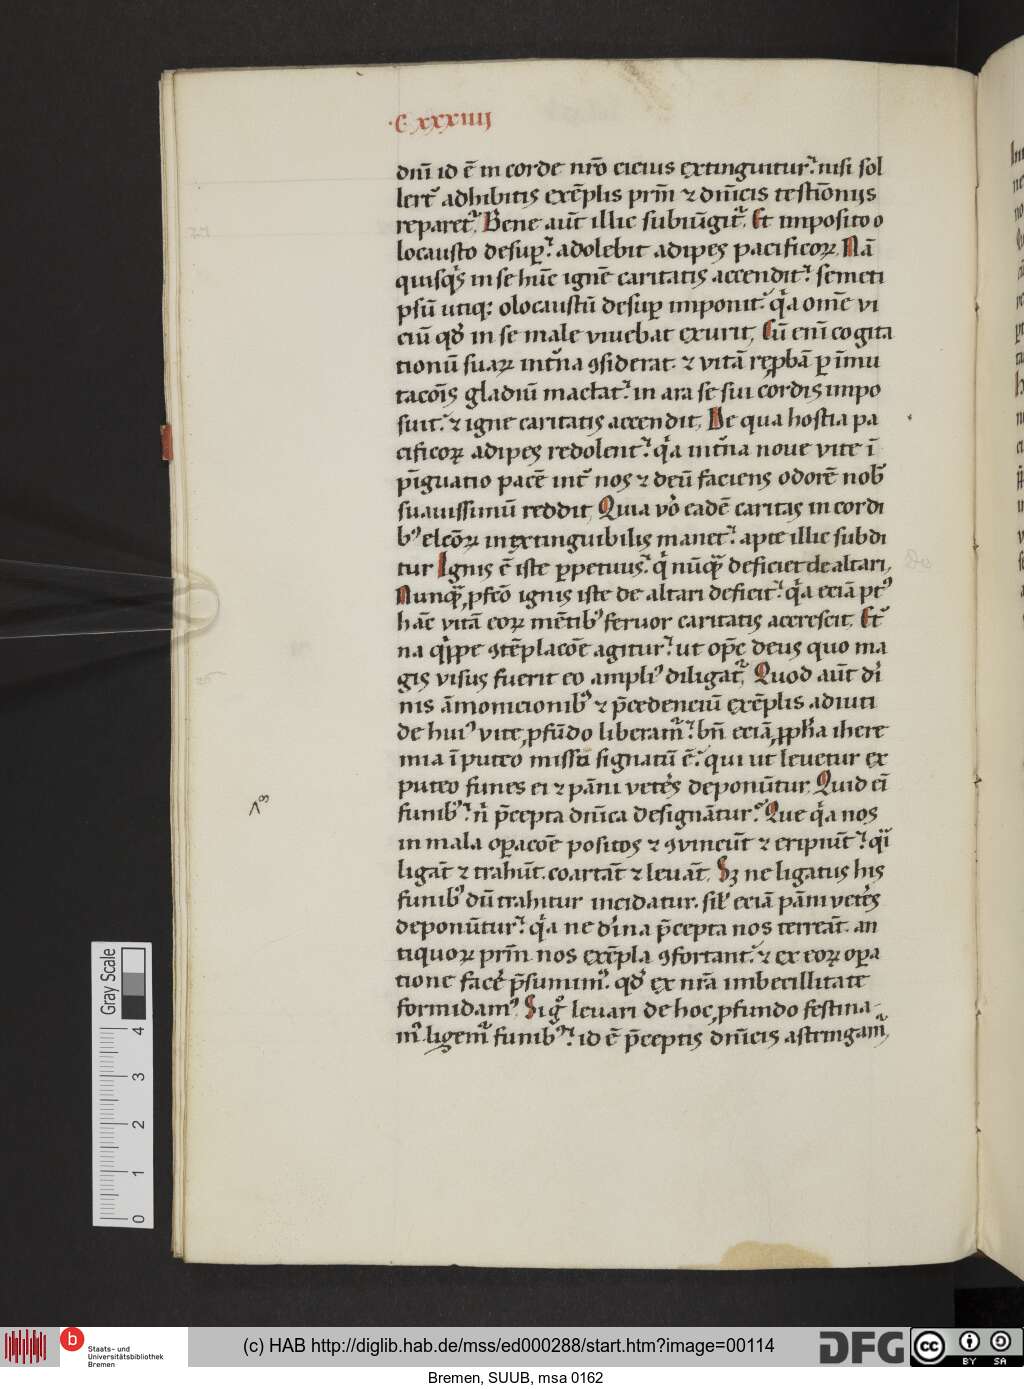 ·C· xxxiiij
dn̄i id ē in corde nr̄o cicius extinguitur. nisi sol
lert᷑ adhibitis exēplis prm̄ ⁊ dn̄icis testīonijs
reparet᷑. Bene aūt illic subiūgit᷑. Et imposito o
locausto desuꝑ. adolebit adipes pacificoꝝ. Nā
quisqꝫ in se hūc ignē caritatis accendit. semeti
psū utiqꝫ olocaustū desuꝑ imponit. qͥa omē vi
ciū qd̓ in se male viuebat exurit. Cū eni cogita
tionū suaꝝ int̓na ꝯsiderat. ⁊ vitā reꝓbā ꝑ īmu
tacōis gladiū mactat. in ara se sui cordis impo
suit. ⁊ igne caritatis accendit. De qua hostia pa
cificoꝝ adipes redolent. qͥa int̓na noue vite ī
pīguatio pacē int̓ nos ⁊ deū faciens odorē nob̓
suauissimū reddit. Quia vo̓ eadē caritas in cordi
bꝰ elcōꝝ inextinguibilis manet. apte illic subdi
tur Ignis ē iste ꝑpetuus. qͥ nūqͣ̄ deficiet de altari.
Nunqͣ̄ ꝓfcō ignis iste de altari deficit. qͥa eciā pꝰt
hāc vitā eoꝝ mētibꝰ feruor caritatis accrescit. Et̓
na qͥppe ꝯtēplacōe agitur. ut opc̄ deus quo ma
gis visus fuerit eo ampliꝰ diligat᷑. Quod aūt di
nis āmonicionibꝰ ⁊ p̄cedenciū exēplis adiuti
de huiꝰ vite ꝓfūdo liberam᷑. bn̄ eciā ꝓpha ihere
mia ī puteo missꝰ signatū ē. qui ut leuetur ex
puteo funes ei ⁊ pāni vetes̓ deponūtur. Quid ei
funibꝰ. ni̓ p̄cepta dn̄ica designātur. Que qͥa nos
in mala oꝑacōe positos ⁊ ꝯuincūt ⁊ eripiūt. qͣi
ligāt ⁊ trahūt. coartāt ⁊ leuāt. Sꝫ ne ligatus his
funibꝰ dū trahitur incidatur. sil̓ eciā pāni vetes̓
deponūtur. qͥa ne di̓na p̄cepta nos terreāt. an
tiquoꝝ prm̄ nos exēpla ꝯfortant. ⁊ ex eoꝝ oꝑa
tione face̓ p̄sumimꝰ. qd̓ ex nrā imbecillitate
formidamꝰ. Si gͦ leuari de hoc ꝓfundo festina
mꝰ. ligem᷑ funibꝰ. id ē p̄ceptis dn̄icis astringam᷑.
Gray Scale
4
3
2
1
0
b
Staats- und
Universitätsbibliothek
Bremen
(c) HAB http://diglib.hab.de/mss/ed000288/start.htm?image=00114
DFG
cc BY SA
Bremen, SUUB, msa 0162